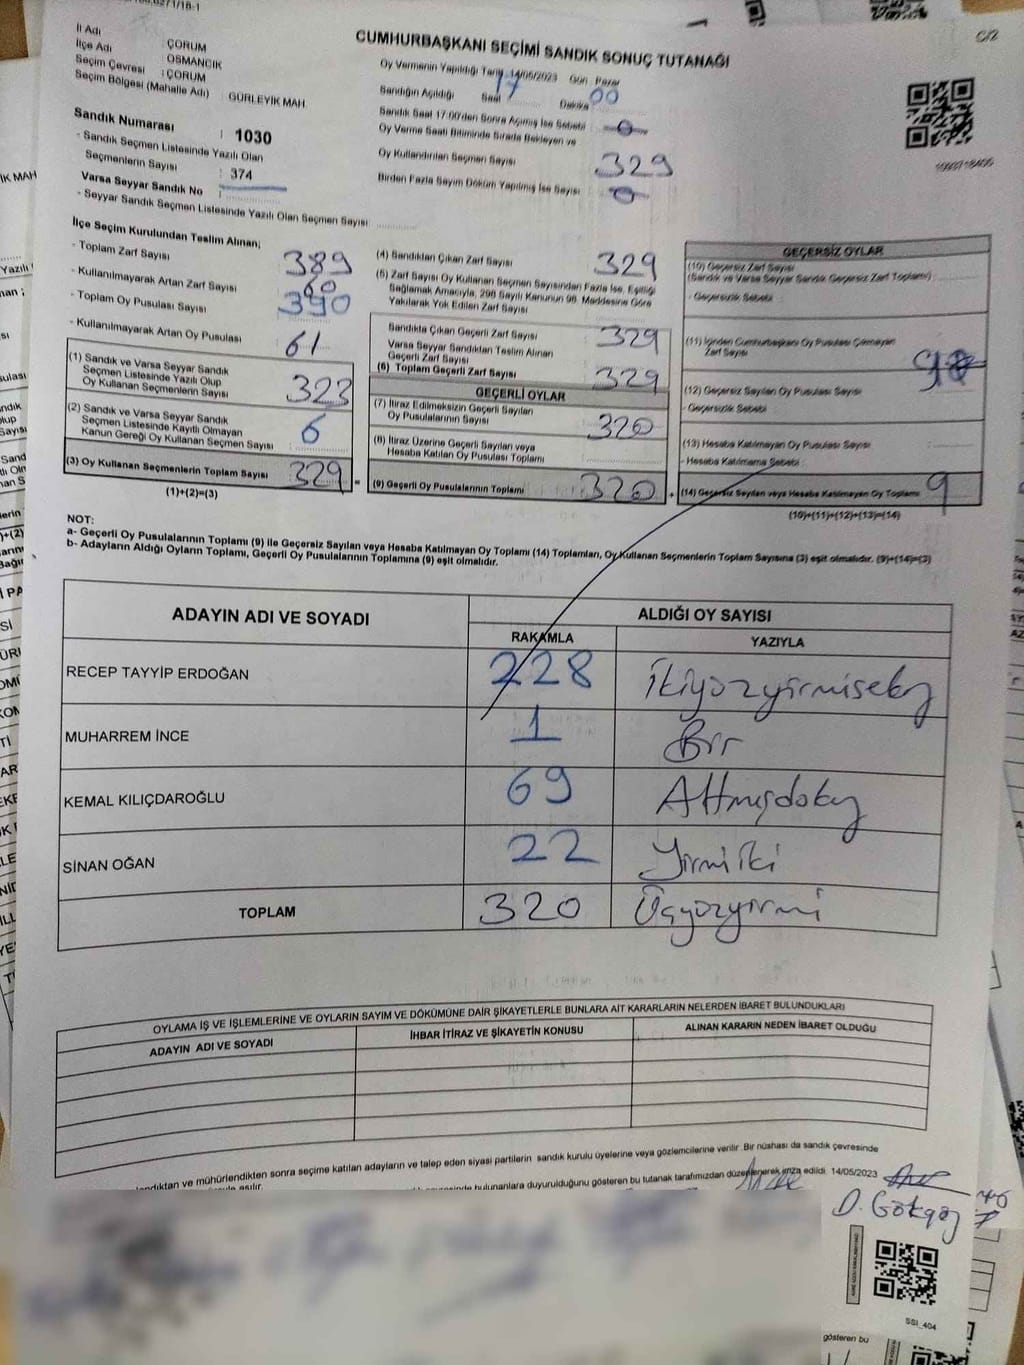 İl Adı
İlçe Adı : ÇORUM
Seçim Çevresi OSMANCIK
Seçim Bölgesi (Mahalle Adı) : ÇORUM
: GÜRLEYİK MAH.
Sandık Numarası : 1030
- Sandık Seçmen Listesinde Yazılı Olan
Seçmenlerin Sayısı : 374
Varsa Seyyar Sandık No :
- Seyyar Sandık Seçmen Listesinde Yazılı Olan Seçmen Sayısı
CUMHURBAŞKANI SEÇİMİ SANDIK SONUÇ TUTANAĞI
Oy Vermenin Yapıldığı Tarih 14/05/2023 Gün : Pazar
Sandığın Açıldığı Saat 17 Dakika 00
Sandık Saat 17:00'den Sonra Açılmış İse Sebebi
Oy Verme Saati Bitiminde Sırada Bekleyen ve
Oy Kullandırılan Seçmen Sayısı 329
Birden Fazla Sayım Döküm Yapılmış İse Sayısı 0
İlçe Seçim Kurulundan Teslim Alınan;
- Toplam Zarf Sayısı 389
- Kullanılmayarak Artan Zarf Sayısı 60
- Toplam Oy Pusulası Sayısı 390
- Kullanılmayarak Artan Oy Pusulası 61
(1) Sandık ve Varsa Seyyar Sandık
Seçmen Listesinde Yazılı Olup
Oy Kullanan Seçmenlerin Sayısı 323
(2) Sandık ve Varsa Seyyar Sandık
Seçmen Listesinde Kayıtlı Olmayan
Kanun Gereği Oy Kullanan Seçmen Sayısı 6
(3) Oy Kullanan Seçmenlerin Toplam Sayısı 329 =
(1)+(2)=(3)
(4) Sandıktan Çıkan Zarf Sayısı 329
(5) Zarf Sayısı Oy Kullanan Seçmen Sayısından Fazla İse, Eşitliği
Sağlamak Amacıyla, 298 Sayılı Kanunun 98. Maddesine Göre
Yakılarak Yok Edilen Zarf Sayısı
Sandıkta Çıkan Geçerli Zarf Sayısı 329
Varsa Seyyar Sandıktan Teslim Alınan
Geçerli Zarf Sayısı
(6) Toplam Geçerli Zarf Sayısı 329
GEÇERLİ OYLAR
(7) İtiraz Edilmeksizin Geçerli Sayılan
Oy Pusulalarının Sayısı 320
(8) İtiraz Üzerine Geçerli Sayılan veya
Hesaba Katılan Oy Pusulası Toplamı
(9) Geçerli Oy Pusulalarının Toplamı 320 +
GEÇERSİZ OYLAR
(10) Geçersiz Zarf Sayısı
(Sandık ve Varsa Seyyar Sandık Geçersiz Zarf Toplamı)
- Geçersizlik Sebebi :
(11) İçinden Cumhurbaşkanı Oy Pusulası Çıkmayan
Zarf Sayısı
(12) Geçersiz Sayılan Oy Pusulası Sayısı
- Geçersizlik Sebebi
(13) Hesaba Katılmayan Oy Pusulası Sayısı
- Hesaba Katılmama Sebebi :
(14) Geçersiz Sayılan veya Hesaba Katılmayan Oy Toplamı 9
(10)+(11)+(12)+(13)=(14)
NOT:
a- Geçerli Oy Pusulalarının Toplamı (9) ile Geçersiz Sayılan veya Hesaba Katılmayan Oy Toplamı (14) Toplamları, Oy Kullanan Seçmenlerin Toplam Sayısına (3) eşit olmalıdır. (9)+(14)=(3)
b- Adayların Aldığı Oyların Toplamı, Geçerli Oy Pusulalarının Toplamına (9) eşit olmalıdır.
ADAYIN ADI VE SOYADI ALDIĞI OY SAYISI
RAKAMLA YAZIYLA
RECEP TAYYİP ERDOĞAN 228 İkiyüzyirmisekiz
MUHARREM İNCE 1 Bir
KEMAL KILIÇDAROĞLU 69 Altmışdokuz
SİNAN OĞAN 22 Yirmiiki
TOPLAM 320 Üçyüzyirmi
OYLAMA İŞ VE İŞLEMLERİNE VE OYLARIN SAYIM VE DÖKÜMÜNE DAİR ŞİKAYETLERLE BUNLARA AİT KARARLARIN NELERDEN İBARET BULUNDUKLARI
ADAYIN ADI VE SOYADI İHBAR İTİRAZ VE ŞİKAYETİN KONUSU ALINAN KARARIN NEDEN İBARET OLDUĞU
ve mühürlendikten sonra seçime katılan adayların ve talep eden siyasi partilerin sandık kurulu üyelerine veya gözlemcilerine verilir. Bir nüshası da sandık çevresinde
bulunanlara duyurulduğunu gösteren bu tutanak tarafımızdan düzenlenerek imza edildi. 14/05/2023
D. Gökgöz
SSI_404
gösteren bu